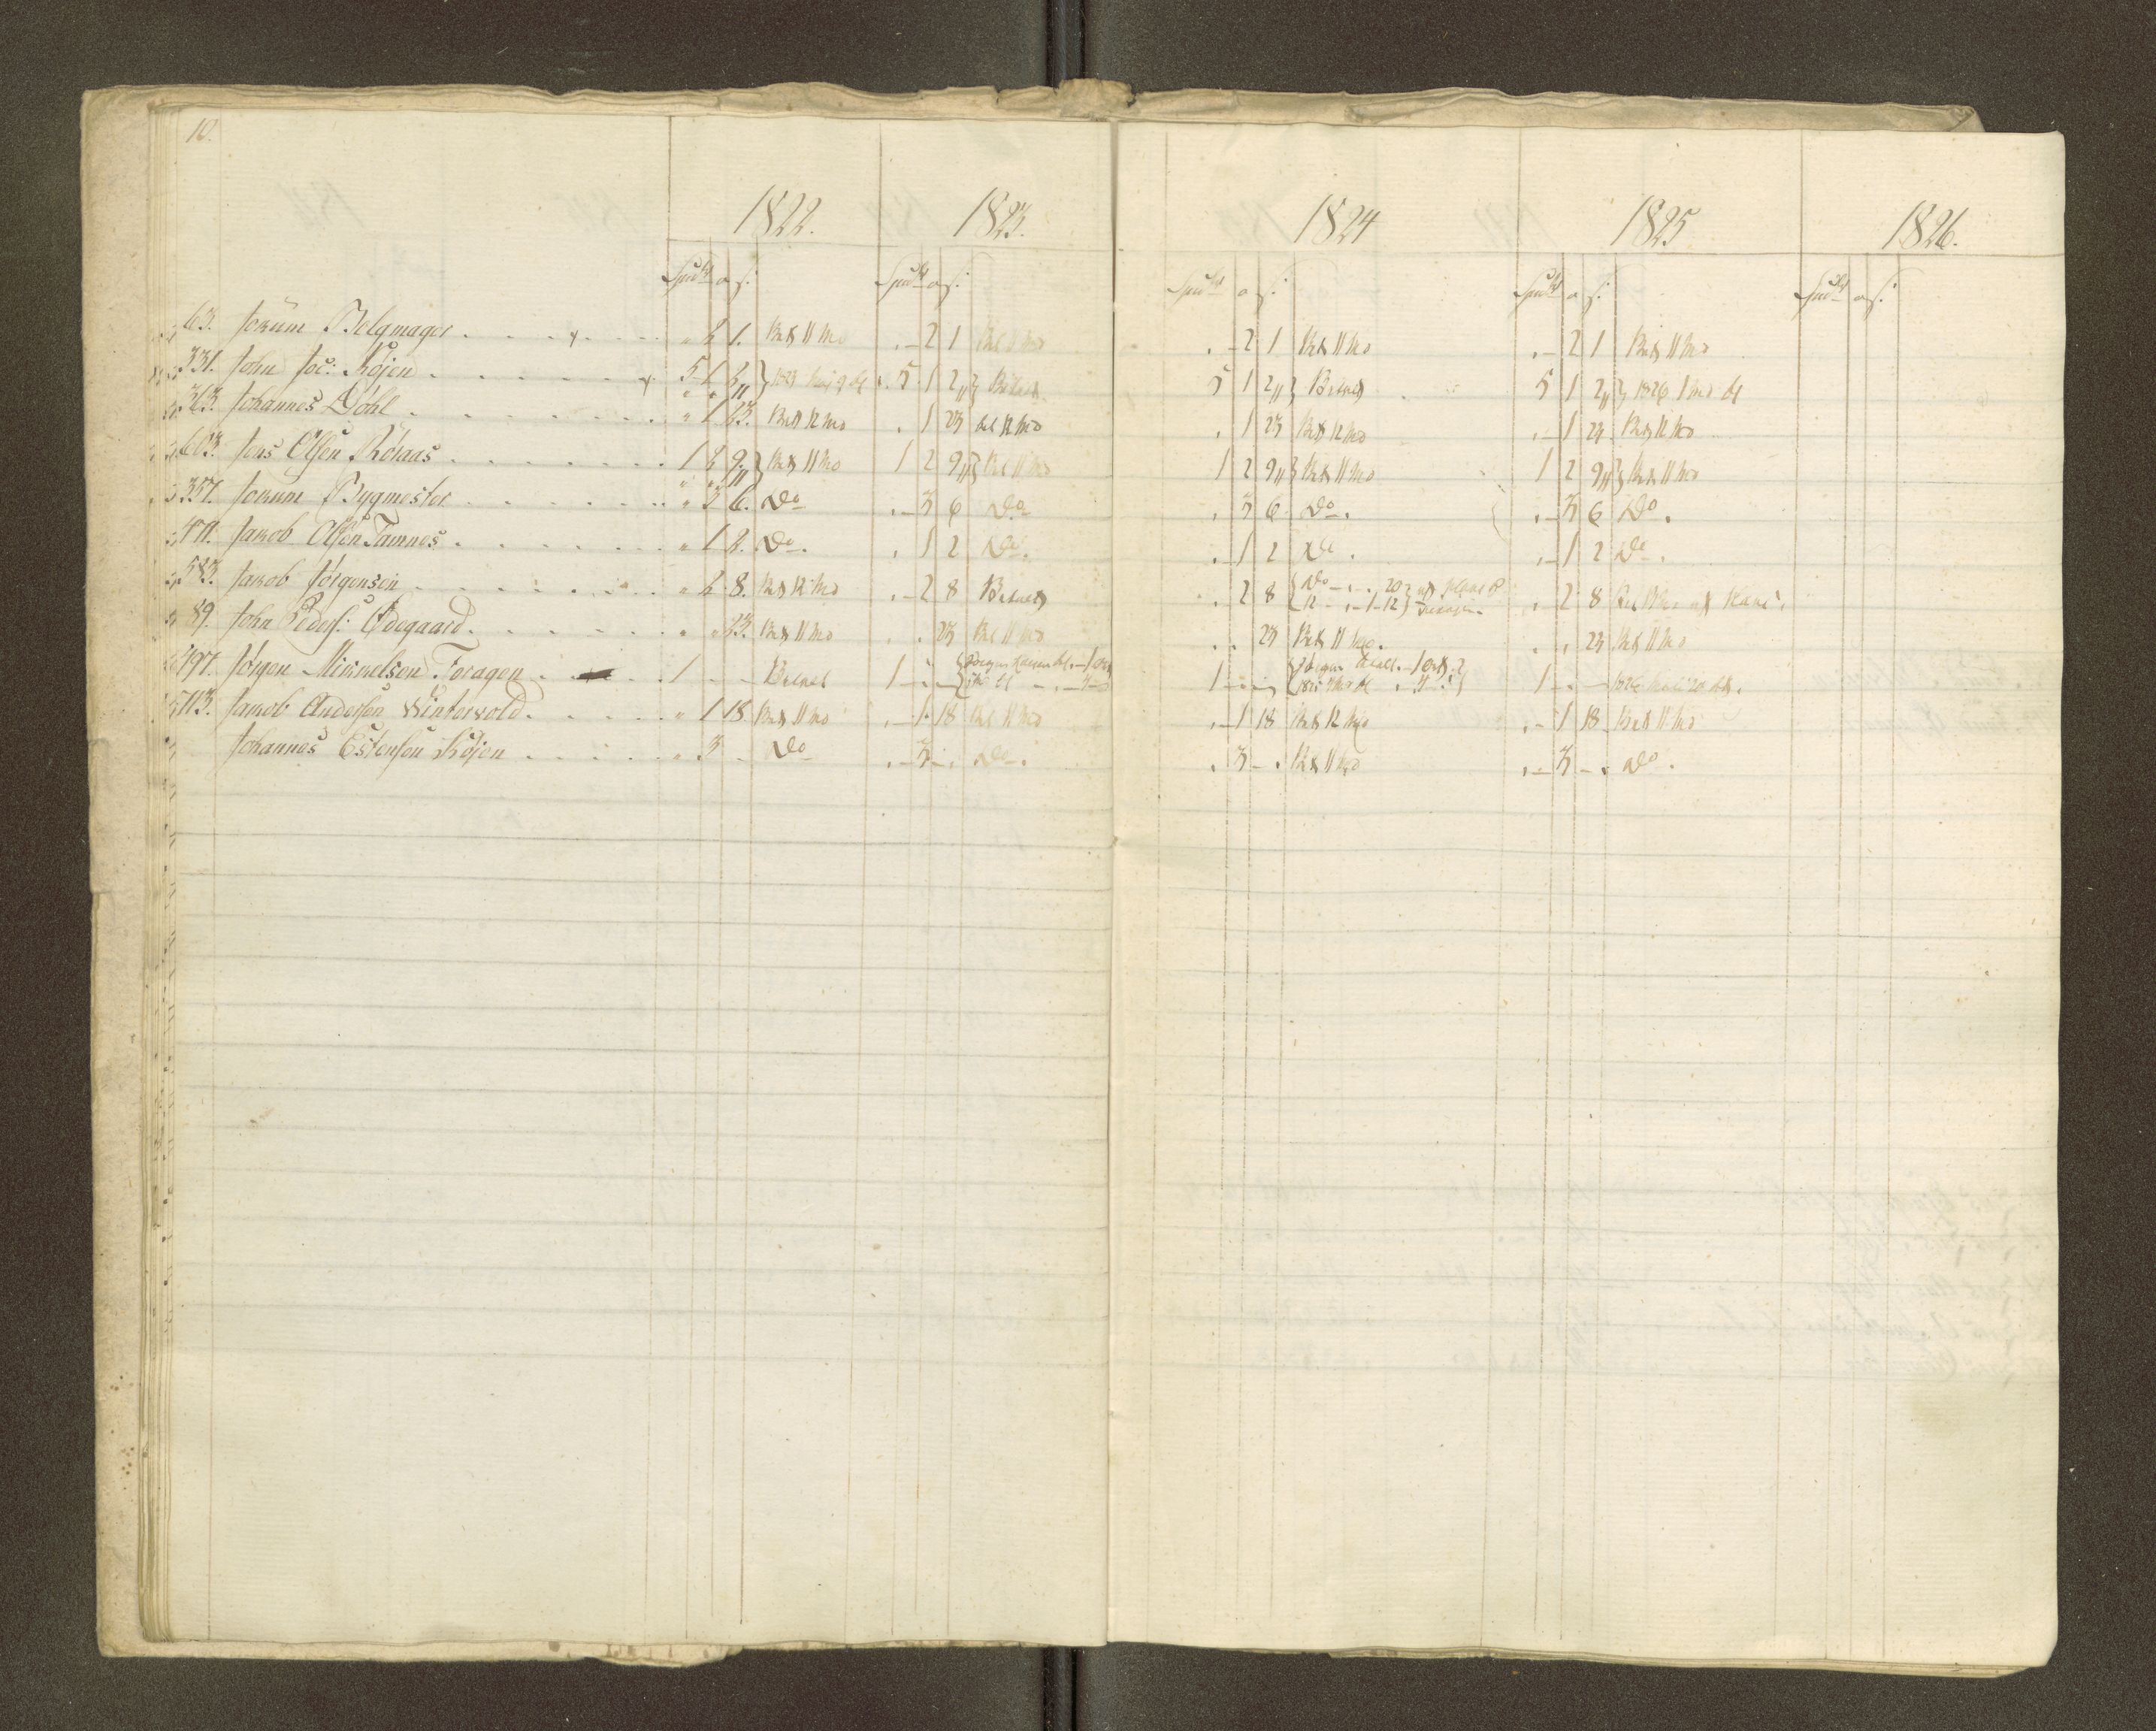 10.
1822. 1823. 1824 1825 1826.
Spd o s: Spd o s: Spd o s: Spd o s: Spd o s:
63. Jokum Belgmager " 2 1. Bet 11 Md " 2 1 Bet 11 Md " 2 1 Bet 11 Md " 2 1 Bet 11 Md
331. John Joc: Røjen 5 1 2 5 1 2 Betalt 5 1 2 Betalt 5 1 2 1826 1 Md bt
363. Johannes Dahl " 1 23. Bet 12 Md " 1 23 bet 12 Md " 1 23 Bet 12 Md " 1 23 Bet 12 Md
603. Jens Olsen Røraas 1 2 9 Bet 11 Md 1 2 9 Bet 11 Md 1 2 9 Bet 11 Md 1 2 9 Bet 11 Md
357. Jokum Bygmester " 3 6. Do " 3 6 Do " 3 6 Do. " 3 6 Do.
Jakob Olsen Tamnes " 1 2. Do. " 1 2 Do. " 1 2 Do. " 1 2 Do.
583. Jakob Jørgensen " 2 8. Bet 12 Md " 2 8 Betalt " 2 8 Do 20 " 2 8
89. John Peders: Ødegaard " " 23. Bet 11 Md " " 23 Bet 11 Md " " 23 Bet 11 Md. " " 23 Bet 11 Md
497. Jørgen Mikkelsen Foragen 1 - - Betalt 1 1 1
113. Jakob Andersen Wintervold " 1 18. Bet 11 Md " 1 18 Bet 11 Md " 1 18 Bet 12 Md " 1 18 Bet 11 Md
Johannes Estensen Røjen " 3 - Do " 3 - Do. " 3 - Bet 11 Md " 3 - Do.